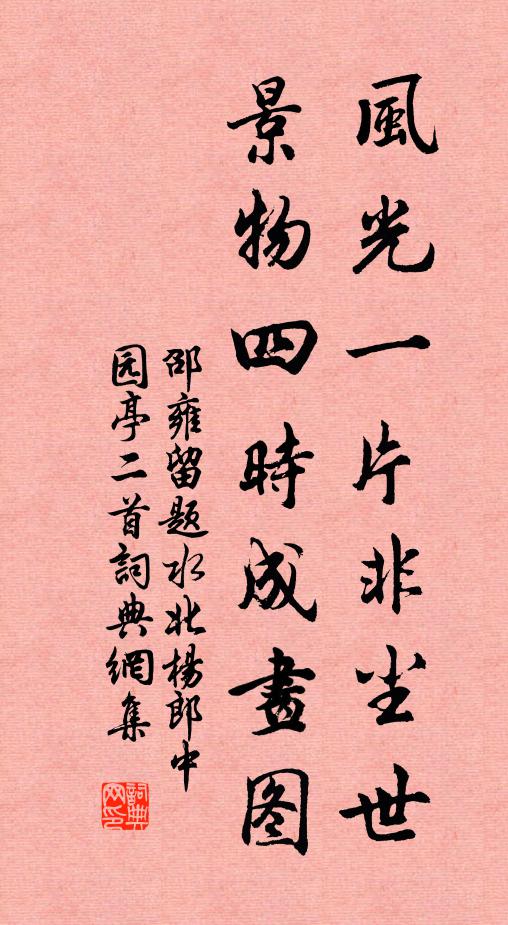 風光一片非尘世
景物四時成畫图
邵雍留题水北楊郎中
园亭二首詞典網集
詞典
网印